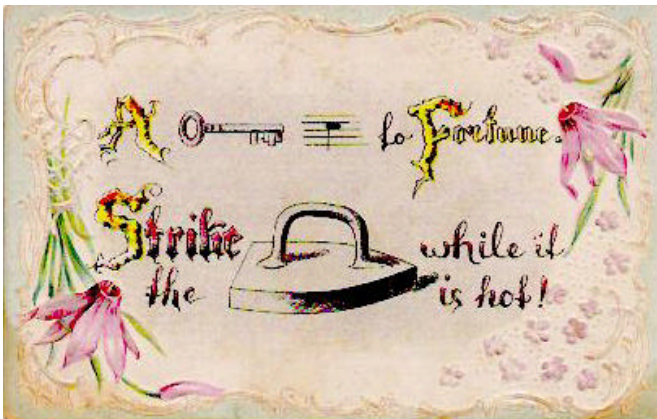 A to Fortune.
Strike while it
the is hot!